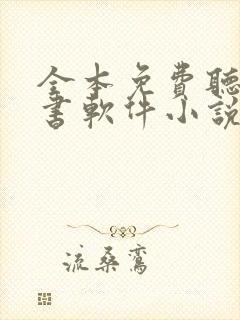 全本免費聽
書軟件小說
流桑鸞